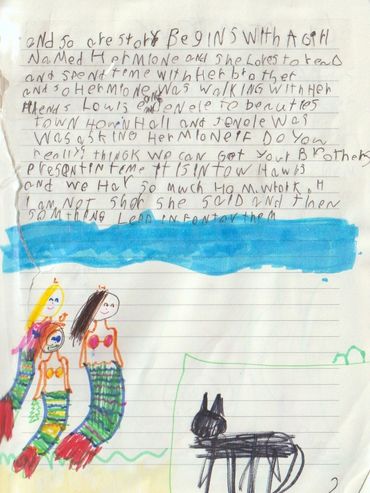 and so are story BEGINS WITH A Girl
NAMED HERMIONE and she Loves to read
and spend time with Her brother
and so HerMione was walking with Her
friends Louis and enele to beauties
TOWN Hall and enele was
was asking HERMIONE if Do You
really think we can Get Your Brothers
present in time it is in Tow Hawrs
and we Hav so much Homwork
I am not shor she said and then
somthing Leap in Fontov them
2